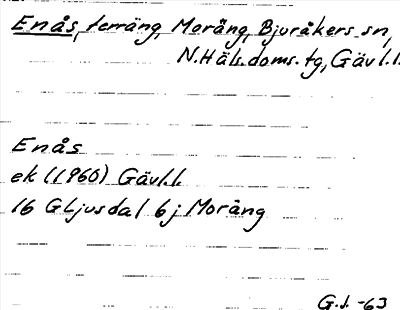 Enås, terräng, Moräng, Bjuråkers sn,
N.Häls.doms.tg, Gävl.l.
Enås
ek (1960) Gävl.l.
16 G Ljusdal 6j Moräng
G.J. -63